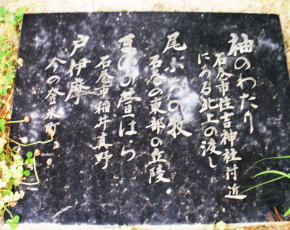 袖のわたり
石巻市住吉神社付近
にある北上の渡し
尾ぶちの牧
石巻の東部の丘陵。
まのの萱はら
石巻市稲井真野
戸伊摩
今の登米町。